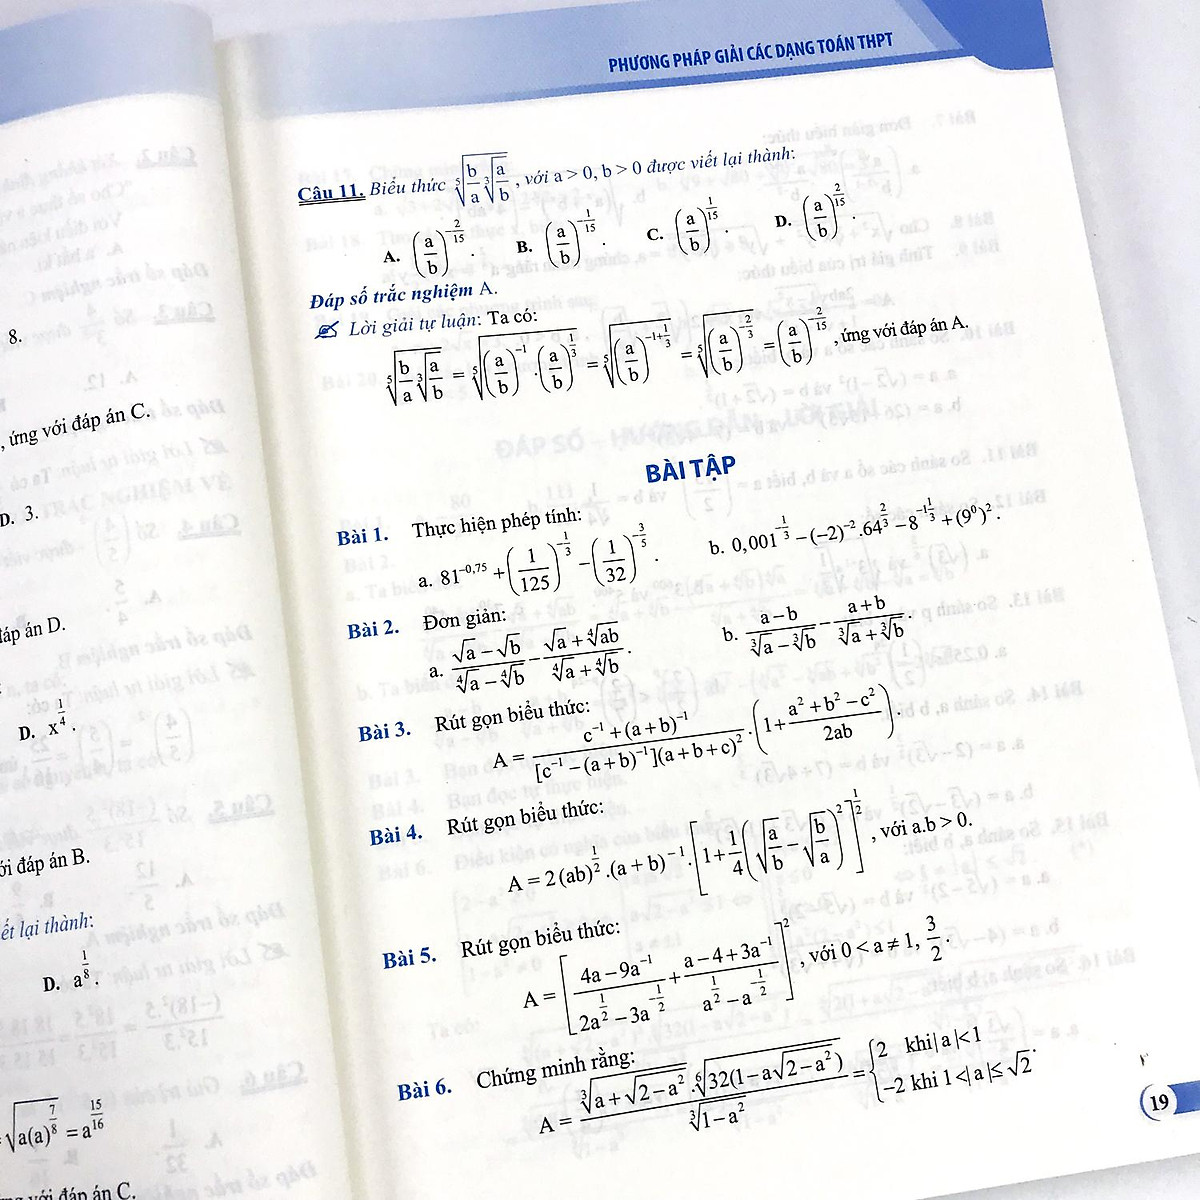 8.
, ứng với đáp án C.
D. 3.
áp án D.
D. x^{1/4}.
ới đáp án B.
ết lại thành:
D. a^{1/8}.
√(a(a)^{7/8}) = a^{15/16}
ng với đáp án C.
PHƯƠNG PHÁP GIẢI CÁC DẠNG TOÁN THPT
Câu 11. Biểu thức ⁵√(b/a ³√(a/b)), với a > 0, b > 0 được viết lại thành:
A. (a/b)^{-2/15}. B. (a/b)^{-1/15}. C. (a/b)^{1/15}. D. (a/b)^{2/15}.
Đáp số trắc nghiệm A.
✍ Lời giải tự luận: Ta có:
⁵√(b/a ³√(a/b)) = ⁵√((a/b)^{-1}.(a/b)^{1/3}) = ⁵√((a/b)^{-1+1/3}) = ⁵√((a/b)^{-2/3}) = (a/b)^{-2/15}, ứng với đáp án A.
BÀI TẬP
Bài 1. Thực hiện phép tính:
a. 81^{-0,75} + (1/125)^{-1/3} − (1/32)^{-3/5}. b. 0,001^{-1/3} − (−2)^{-2}.64^{2/3} − 8^{-1 1/3} + (9^0)^2.
Bài 2. Đơn giản:
a. (√a − √b)/(⁴√a − ⁴√b) − (√a + ⁴√ab)/(⁴√a + ⁴√b). b. (a − b)/(³√a − ³√b) − (a + b)/(³√a + ³√b).
Bài 3. Rút gọn biểu thức:
A = (c^{-1} + (a + b)^{-1})/([c^{-1} − (a + b)^{-1}](a + b + c)^2).(1 + (a^2 + b^2 − c^2)/2ab).
Bài 4. Rút gọn biểu thức:
A = 2(ab)^{1/2}.(a + b)^{-1}.[1 + 1/4(√(a/b) − √(b/a))^2]^{1/2}, với a.b > 0.
Bài 5. Rút gọn biểu thức:
A = [(4a − 9a^{-1})/(2a^{1/2} − 3a^{-1/2}) + (a − 4 + 3a^{-1})/(a^{1/2} − a^{-1/2})]^2, với 0 < a ≠ 1, 3/2.
Bài 6. Chứng minh rằng:
A = (³√(a + √(2 − a^2)).⁶√(32(1 − a√(2 − a^2))))/³√(1 − a^2) = {2 khi |a| < 1
−2 khi 1 < |a| ≤ √2.
19